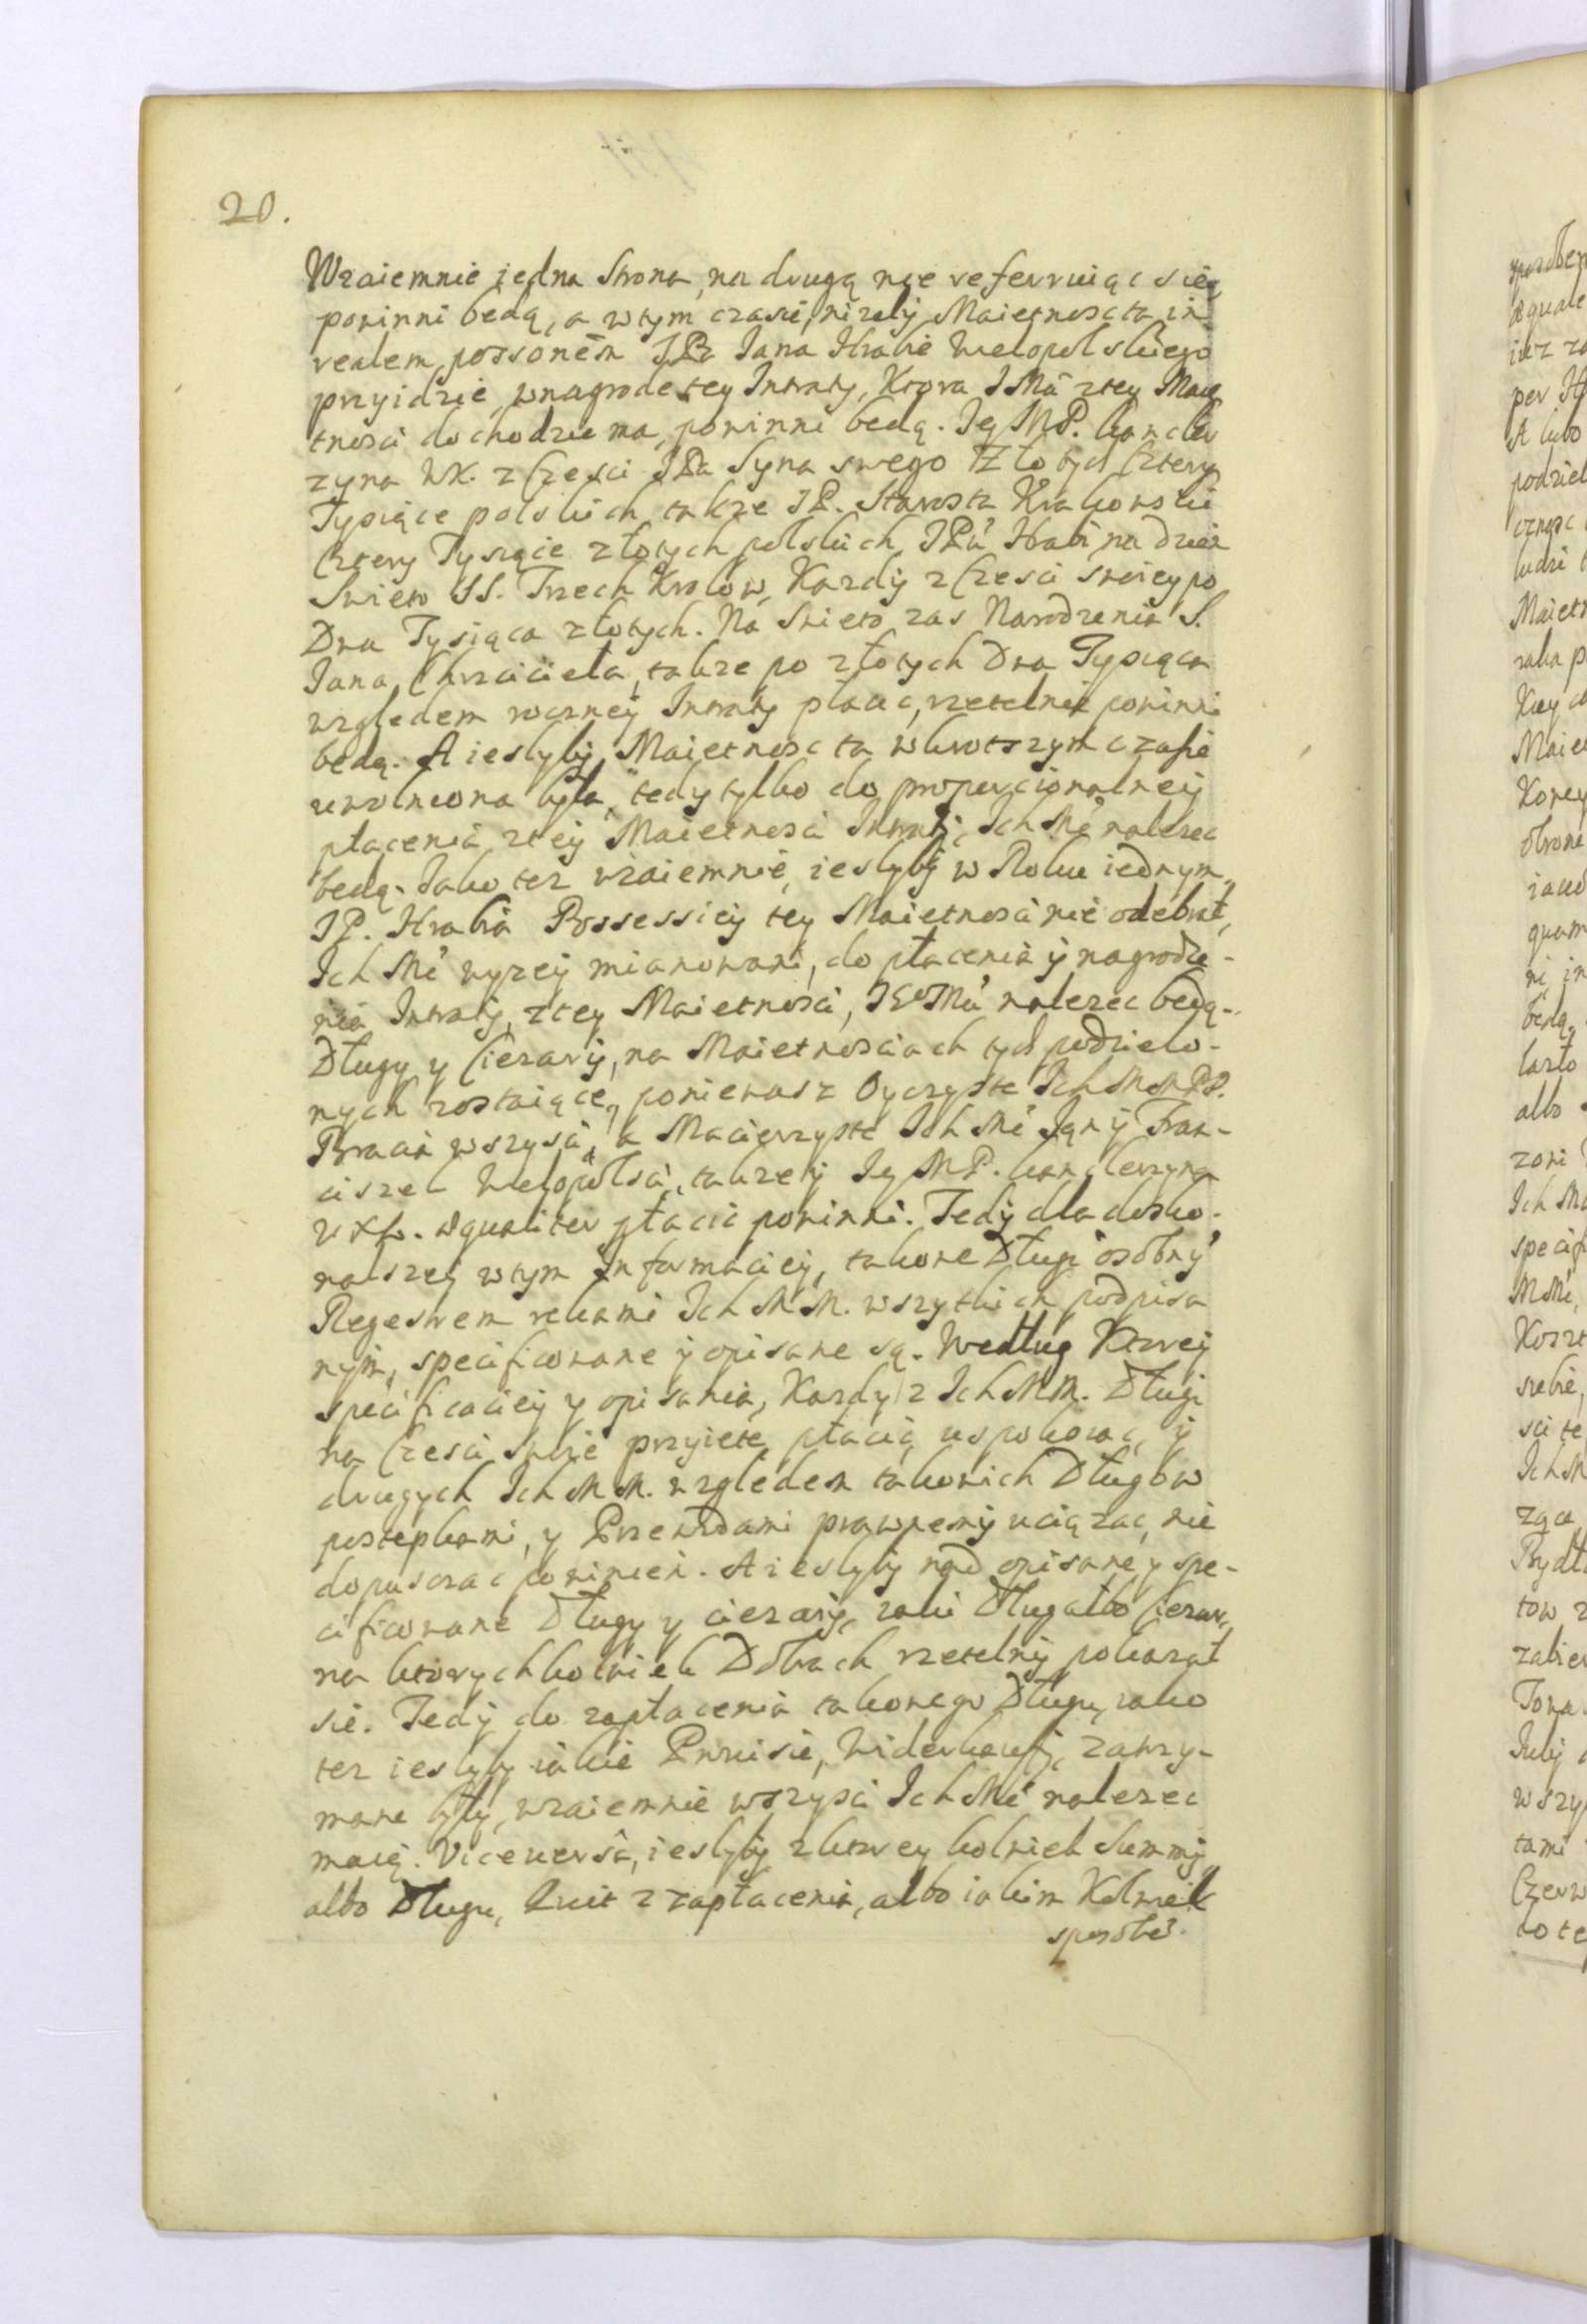 20.
Wzaiemnie iedna Strona, na drugą nie referruiąc sie,
powinni będą, a wtym czasie, nizely Maietnosc ta in
realem possonem JPa Jana Hrabie Wielopolskiego
przyidzie, wnagrode tey Intraty, Ktora JMā ztey Maie
tnosci dochodzic ma, powinni będą. Jey MP. kancler
zyna WK. z Częsci JPa Syna swego Złotych Cztery
Tysiące polskich, takze JP. Starosta Krakowski
Cztery Tysiące złotych polskich JPu Hrabi na dzien
Swieto SS. Trzech Krolow, Kazdy z Czesci swoiey po
Dwa Tysiąca złotych. Na Swieto zas Narodzenia S.
Jana Chrzciciela, takze po złotych Dwa Tysiąca
względem roczney Intraty płacic, rzetelnie powinni
będą. A ieslyby Maietnosc ta wkrotszym czasie
uwolniona była, tedy tylko do proporcionalney
płacenia ztey Maietnosci Intraty, Ich Mć nalezec
będą. Jako tez wzaiemnie, ieslyby w Roku iednym
JP. Hrabia Possessiey tey Maietnosci nie odebrał,
Ich Mć wyzey mianowani, do płacenia y nagrodze-
nia Intraty, ztey Maietnosci, JEoMci nalezec będą.
Długy y Ciezary, na Maietnosciach tych podzielo-
nych zostaiące, poniewasz Oyczyste Ich MMPP.
Bracia wszysci, a Macierzyste Ich Mć Jan y Fran-
ciszek Wielopolsci, takzey Jey MP. kanclerzyna
WXL. æqualiter płacic powinni. Tedy dla dosko-
nalszey wtym Informaciey, takowe Długi osobny
Regestrem rekami Ich MM. wszytkich podpisa
nym, specificowane y opisane są. Według Ktorey
specificaciey y opisania, Kazdy z Ich MM. Długi
na Czesci swoie przyiete płacic, uspokoiac, y
drugych Ich MM. względem takowich Długow
postepkami, y Przewodami prawnemy uciązac, nie
dopuszczac powinien. A ieslyby nad opisane y spe-
cificowane Długy y ciezary, iaki Dług albo Ciezar,
na ktorychkolwiek Dobrach rzetelny pokazał
sie. Tedy do zapłacenia takowego Długu, iako
tez ieslyby iakie Prowisie, Widerkaufy, zatrzy-
mane były, wzaiemnie wszysci Ich Mć nalezec
maią. Viceversâ, ieslyby z ktorey kolwiek Summy
albo Długu, Kwit z zapłacenia, albo iakim Kolwiek
sposobē.